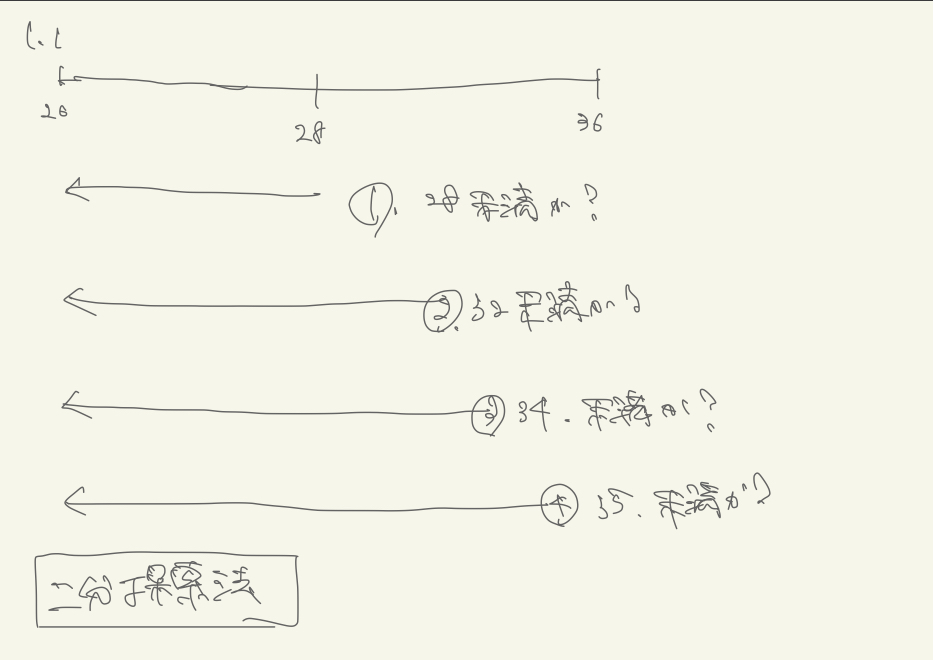 1.1
20
28
36
①. 28未満か?
②. 32未満か?
③ 34. 未満か?
④ 35. 未満か?
二分探索法